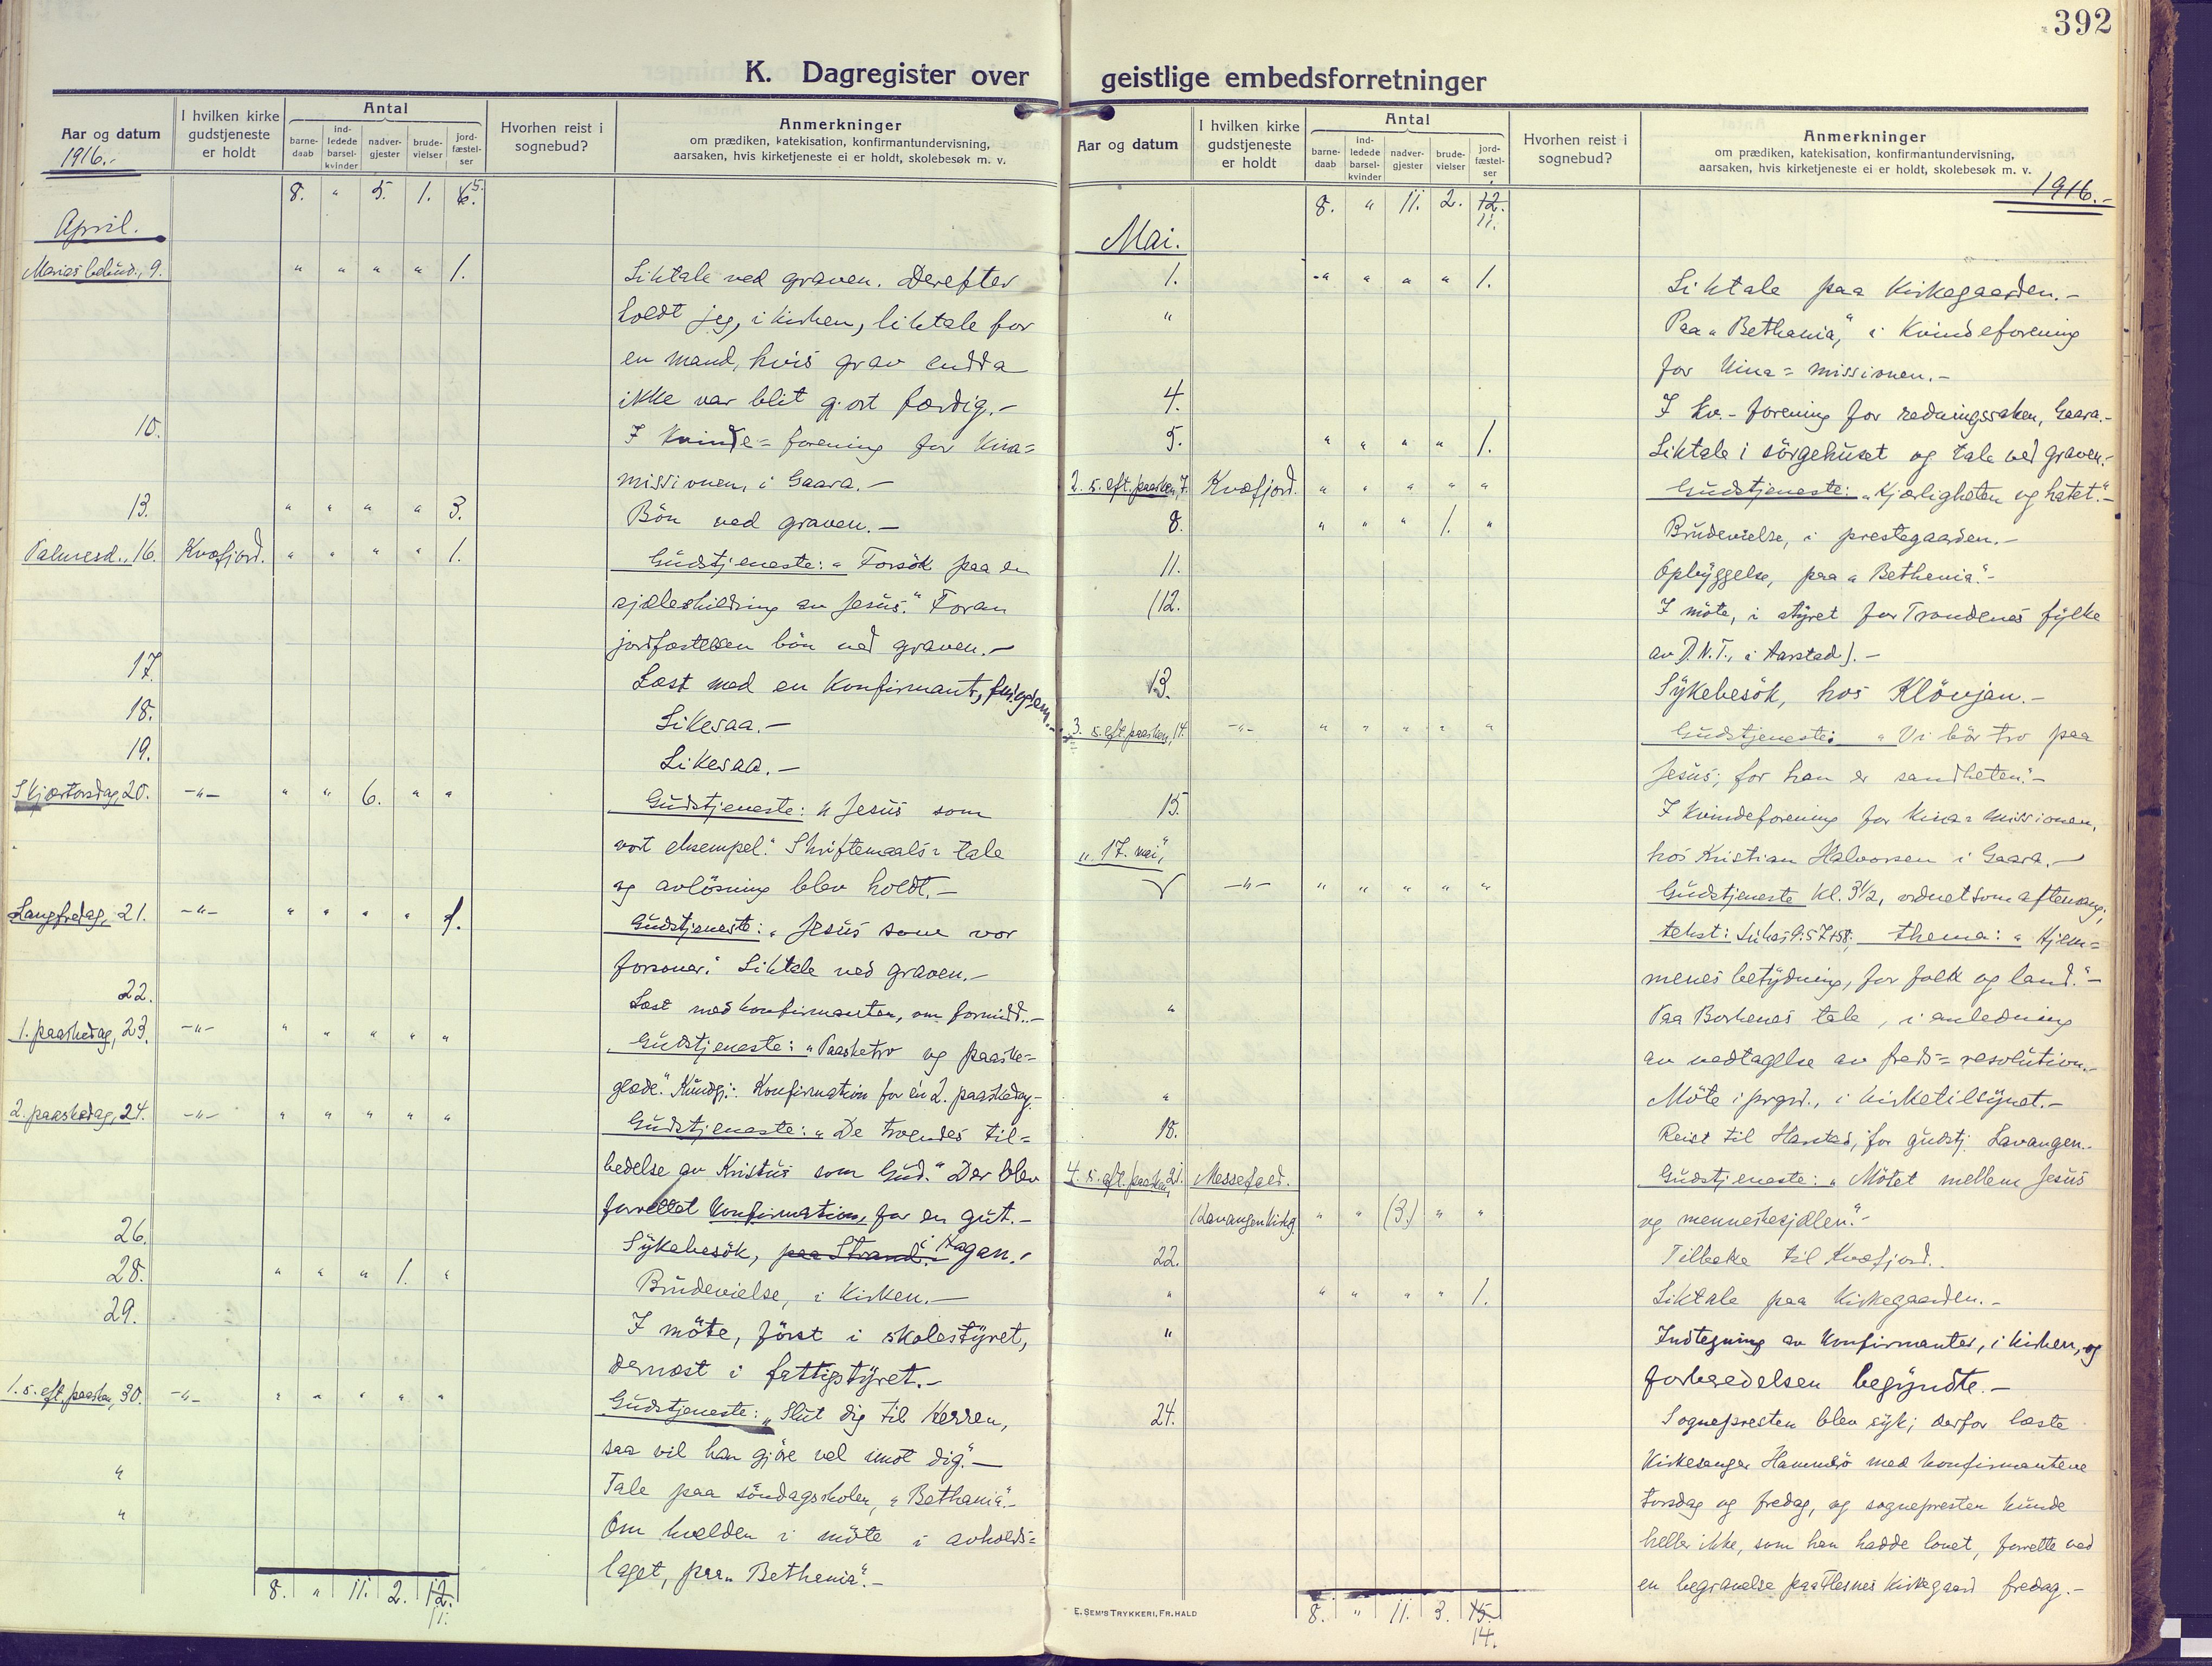 392
K. Dagregister over geistlige embedsforretninger
Aar og datum
1916.-
I hvilken kirke gudstjeneste er holdt
Antal
barne-daab
ind-ledede barsel-kvinder
nadver-gjester
brude-vielser
jord-fæstel-ser
Hvorhen reist i sognebud?
Anmerkninger
om prædiken, katekisation, konfirmantundervisning,
aarsaken, hvis kirketjeneste ei er holdt, skolebesøk m. v.
8. " 5. 1. 6. 5.
April.
Marias bebud., 9. " " " " 1. Liktale ved graven. Derefter
holdt jeg, i kirken, liktale for
en mand, hvis grav endda
ikke var blit gjort færdig.-
10. I Kvinde=forening for Kina=
missionen, i Gaara.-
13. " " " " 3. Bön ved graven.-
Palmesd., 16. Kvæfjord. " " " " 1. Gudstjeneste: "Forsök paa en
sjæleskildring av Jesus." Foran
jordfæstelsen bön ved graven.-
17. Læst med en Konfirmant,
18. Likesaa.-
19. Likesaa.-
Skjærtorsdag, 20. -"- " " 6. " " Gudstjeneste: "Jesus som
vort eksempel." Skriftemaals= tale
og avlösning blev holdt.-
Langfredag, 21. -"- " " " " 1. Gudstjeneste: "Jesus som vor
forsoner." Liktale ved graven.-
22. Læst med konfirmanten, om formidd.-
1. paaskedag, 23. -"- " " " " " Gudstjeneste: "Paasketro og paaske=
glæde." Kundgj.: Konfirmation for én 2. paaskedag.-
2. paaskedag, 24. -"- " " " " " Gudstjeneste: "De troendes til=
bedelse av Kristus som Gud." Der blev
forrettet Konfirmation, for en gut.-
26. Sykebesök, paa Strand. i Hagan.-
28. " " " 1. " Brudevielse, i Kirken.-
29. I möte, först i skolestyret,
dernæst i fattigstyret.-
1. s. eft. paasken, 30. -"- " " " " " Gudstjeneste: "Slut dig til Herren,
saa vil han gjöre vel imot dig".-
" Tale paa söndagsskolen, "Bethania".-
" Om kvelden i möte i avholds=
laget, paa "Bethania".-
8. " 11. 2. 12.
11.
Aar og datum
I hvilken kirke gudstjeneste er holdt
Antal
barne-daab
ind-ledede barsel-kvinder
nadver-gjester
brude-vielser
jord-fæstel-ser
Hvorhen reist i sognebud?
Anmerkninger
om prædiken, katekisation, konfirmantundervisning,
aarsaken, hvis kirketjeneste ei er holdt, skolebesøk m. v.
1916.-
8. " 11. 2. 12.
11.
Mai.
1. " " " " 1. Liktale paa Kirkegaarden.-
" Paa "Bethania", i Kvindeforening
for Kina=missionen.-
4. I kv.-forening for redningssaken, Gaara.-
5. " " " " 1. Liktale i sörgehuset og tale ved graven.-
2. s. eft. paasken, 7. Kvæfjord. " " " " " Gudstjeneste: "Kjærligheten og hatet".-
8. " " " 1. " Brudevielse, i prestegaarden.-
11. Opbyggelse, paa "Bethania".-
(12. I möte, i styret for Trondenes fylke
av D.N.T., i Harstad).-
13. Sykebesök, hos Klövjan.-
3. s. eft. paasken, 14. -"- " " " " " Gudstjeneste: "Vi bör tro paa
Jesus; for han er sandheten".-
15. I Kvindeforening for Kina=missionen,
hos Kristian Halvorsen i Gaara.-
"17. mai", -"- " " " " " Gudstjeneste Kl. 3½, ordnet som aftensang;
tekst: Lukas 9:57+58; thema: "Hjem=
menes betydning, for folk og land."-
" Paa Borkenes tale, i anledning
av vedtagelse av freds=resolution.-
" Möte i prgrd., i kirketilsynet.-
18. Reist til Harstad, for gudstj. Lavangen.-
4. s. eft. paasken, 21. Messefald. Gudstjeneste: "Mötet mellem Jesus
(Lavangen kirke). " " (3.) " " og menneskesjælen".-
22. Tilbake til Kvæfjord.
" " " " " 1. Liktale paa Kirkegaarden.-
" Indtegning av Konfirmanter, i kirken, og
forberedelsen begyndte.-
24. Sognepresten blev syk; derfor læste
Kirkesanger Hammerö med konfirmantene
torsdag og fredag, og sognepresten kunde
heller ikke, som han hadde lovet, forrette ved
en begravelse paa Flesnes kirkegaard fredag.-
E. SEM'S TRYKKERI, FR. HALD
8. " 11. 3. 15.
14.